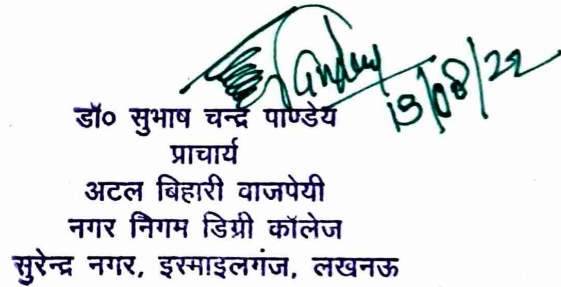 19/08/22
डॉ० सुभाष चन्द्र पाण्डेय
प्राचार्य
अटल बिहारी वाजपेयी
नगर निगम डिग्री कॉलेज
सुरेन्द्र नगर, इस्माइलगंज, लखनऊ